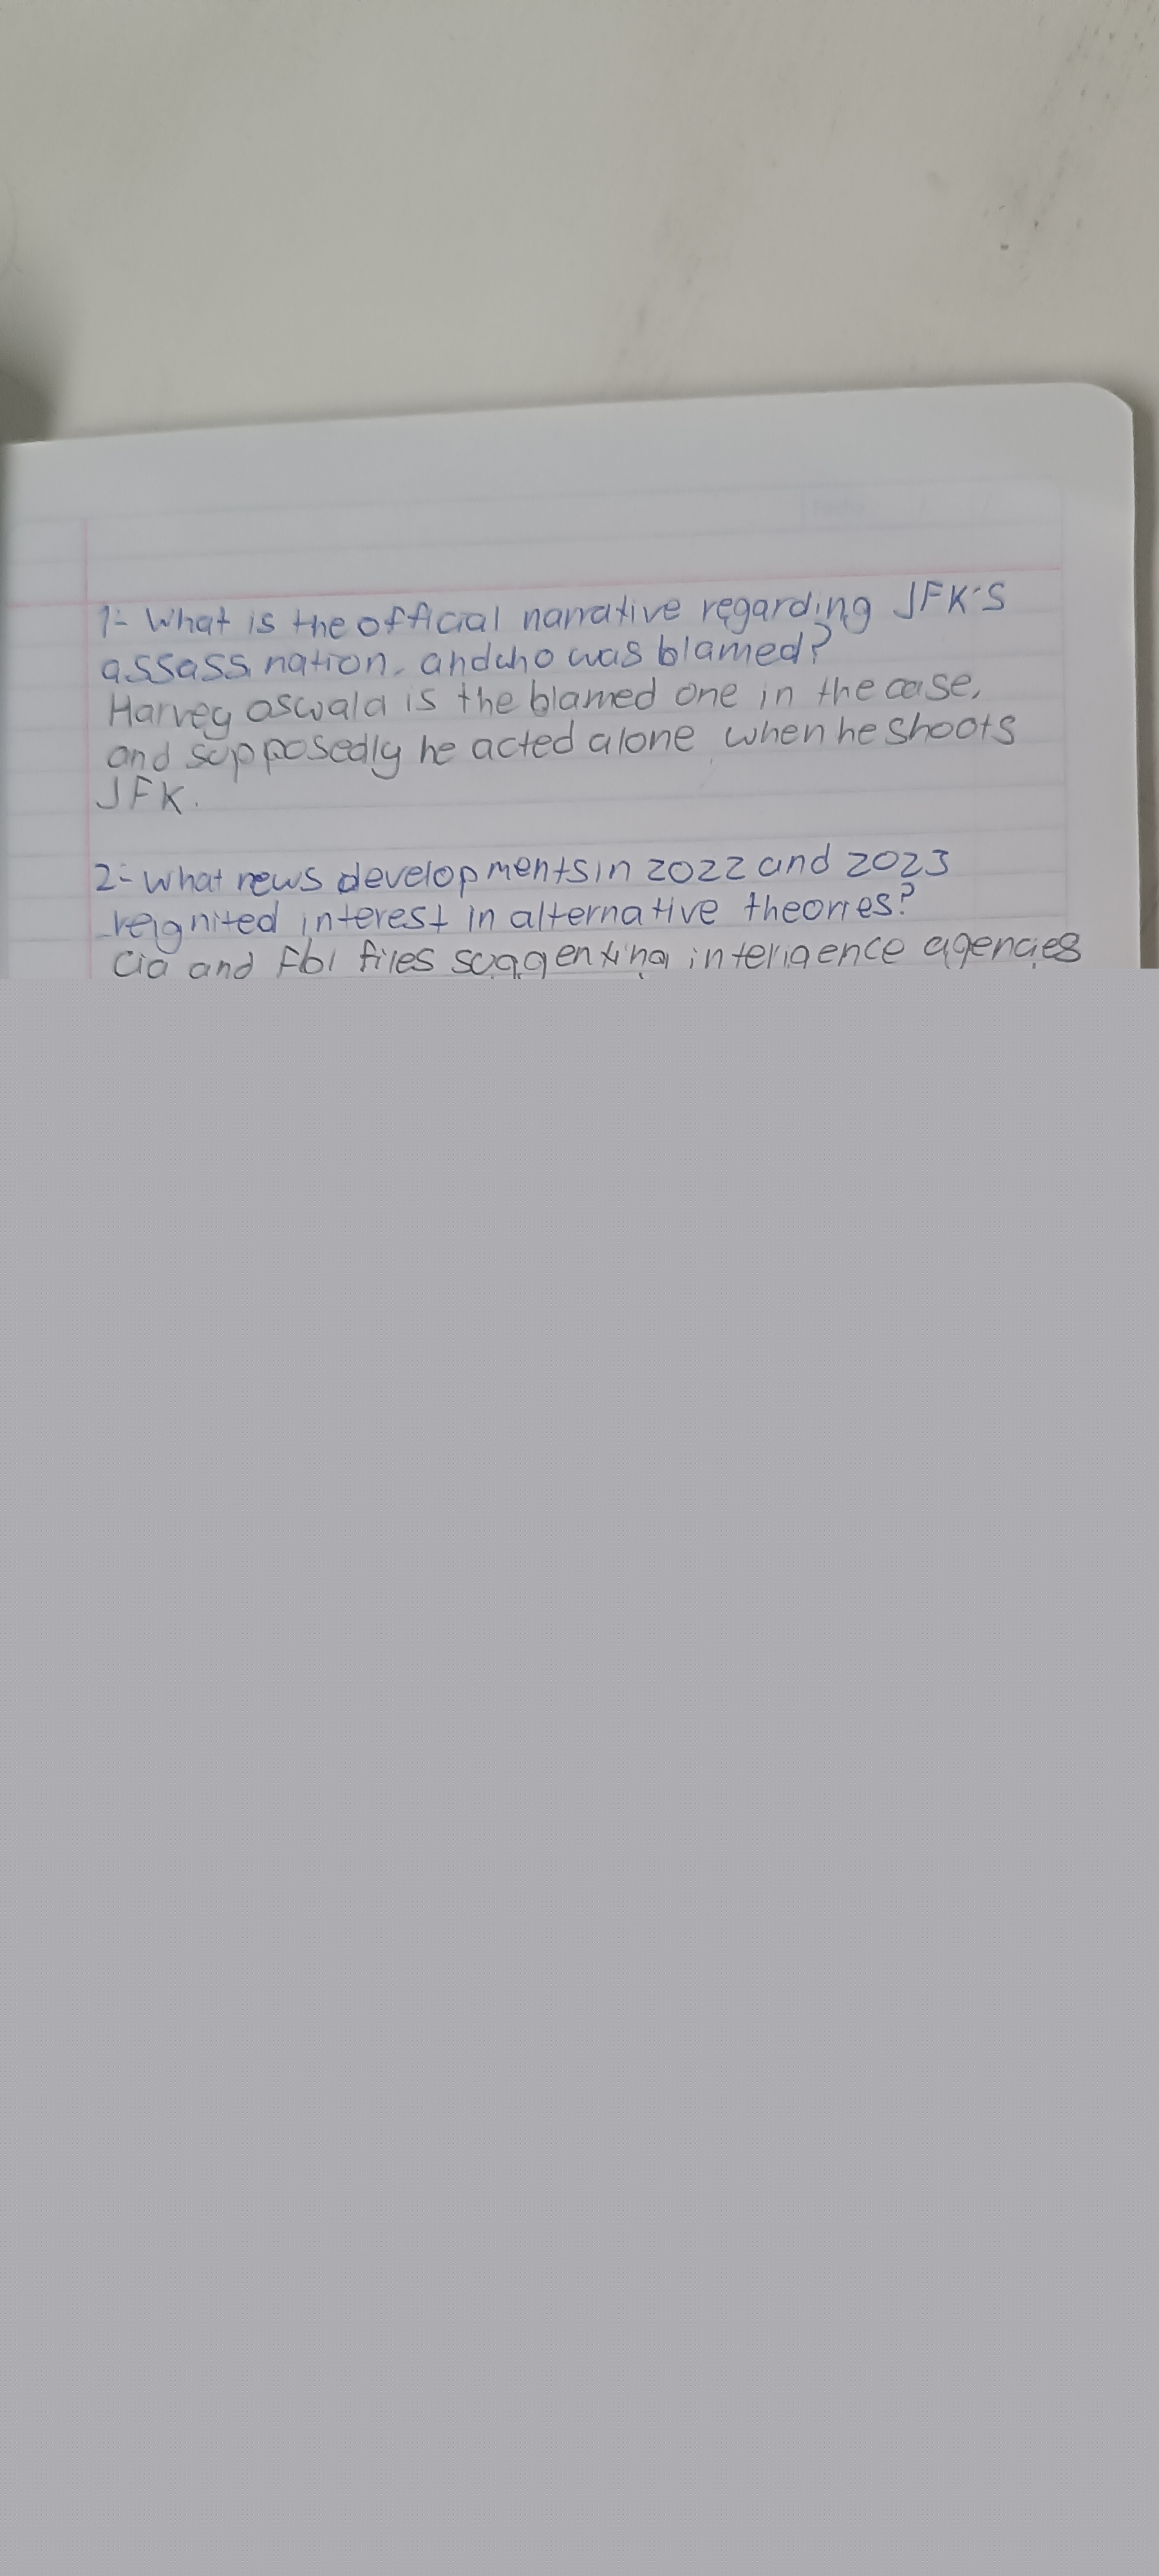 1- What is the official narrative regarding JFK'S
assassination, and who was blamed?
Harvey oswald is the blamed one in the case,
and supposedly he acted alone when he shoots
JFK.
2- What news developments in 2022 and 2023
reignited interest in alternative theories?
Cia and Fbi files suggenting inteligence agencies